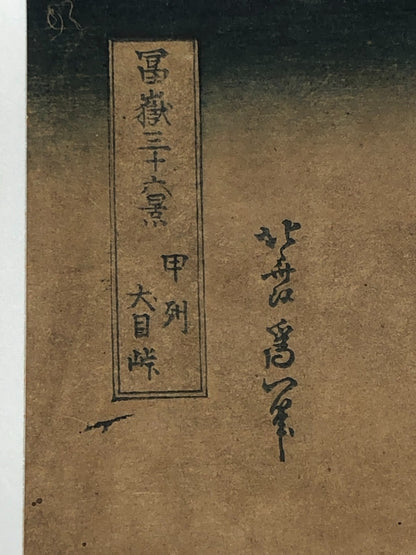 冨嶽三十六景
甲州
犬目峠
北斎爲一筆